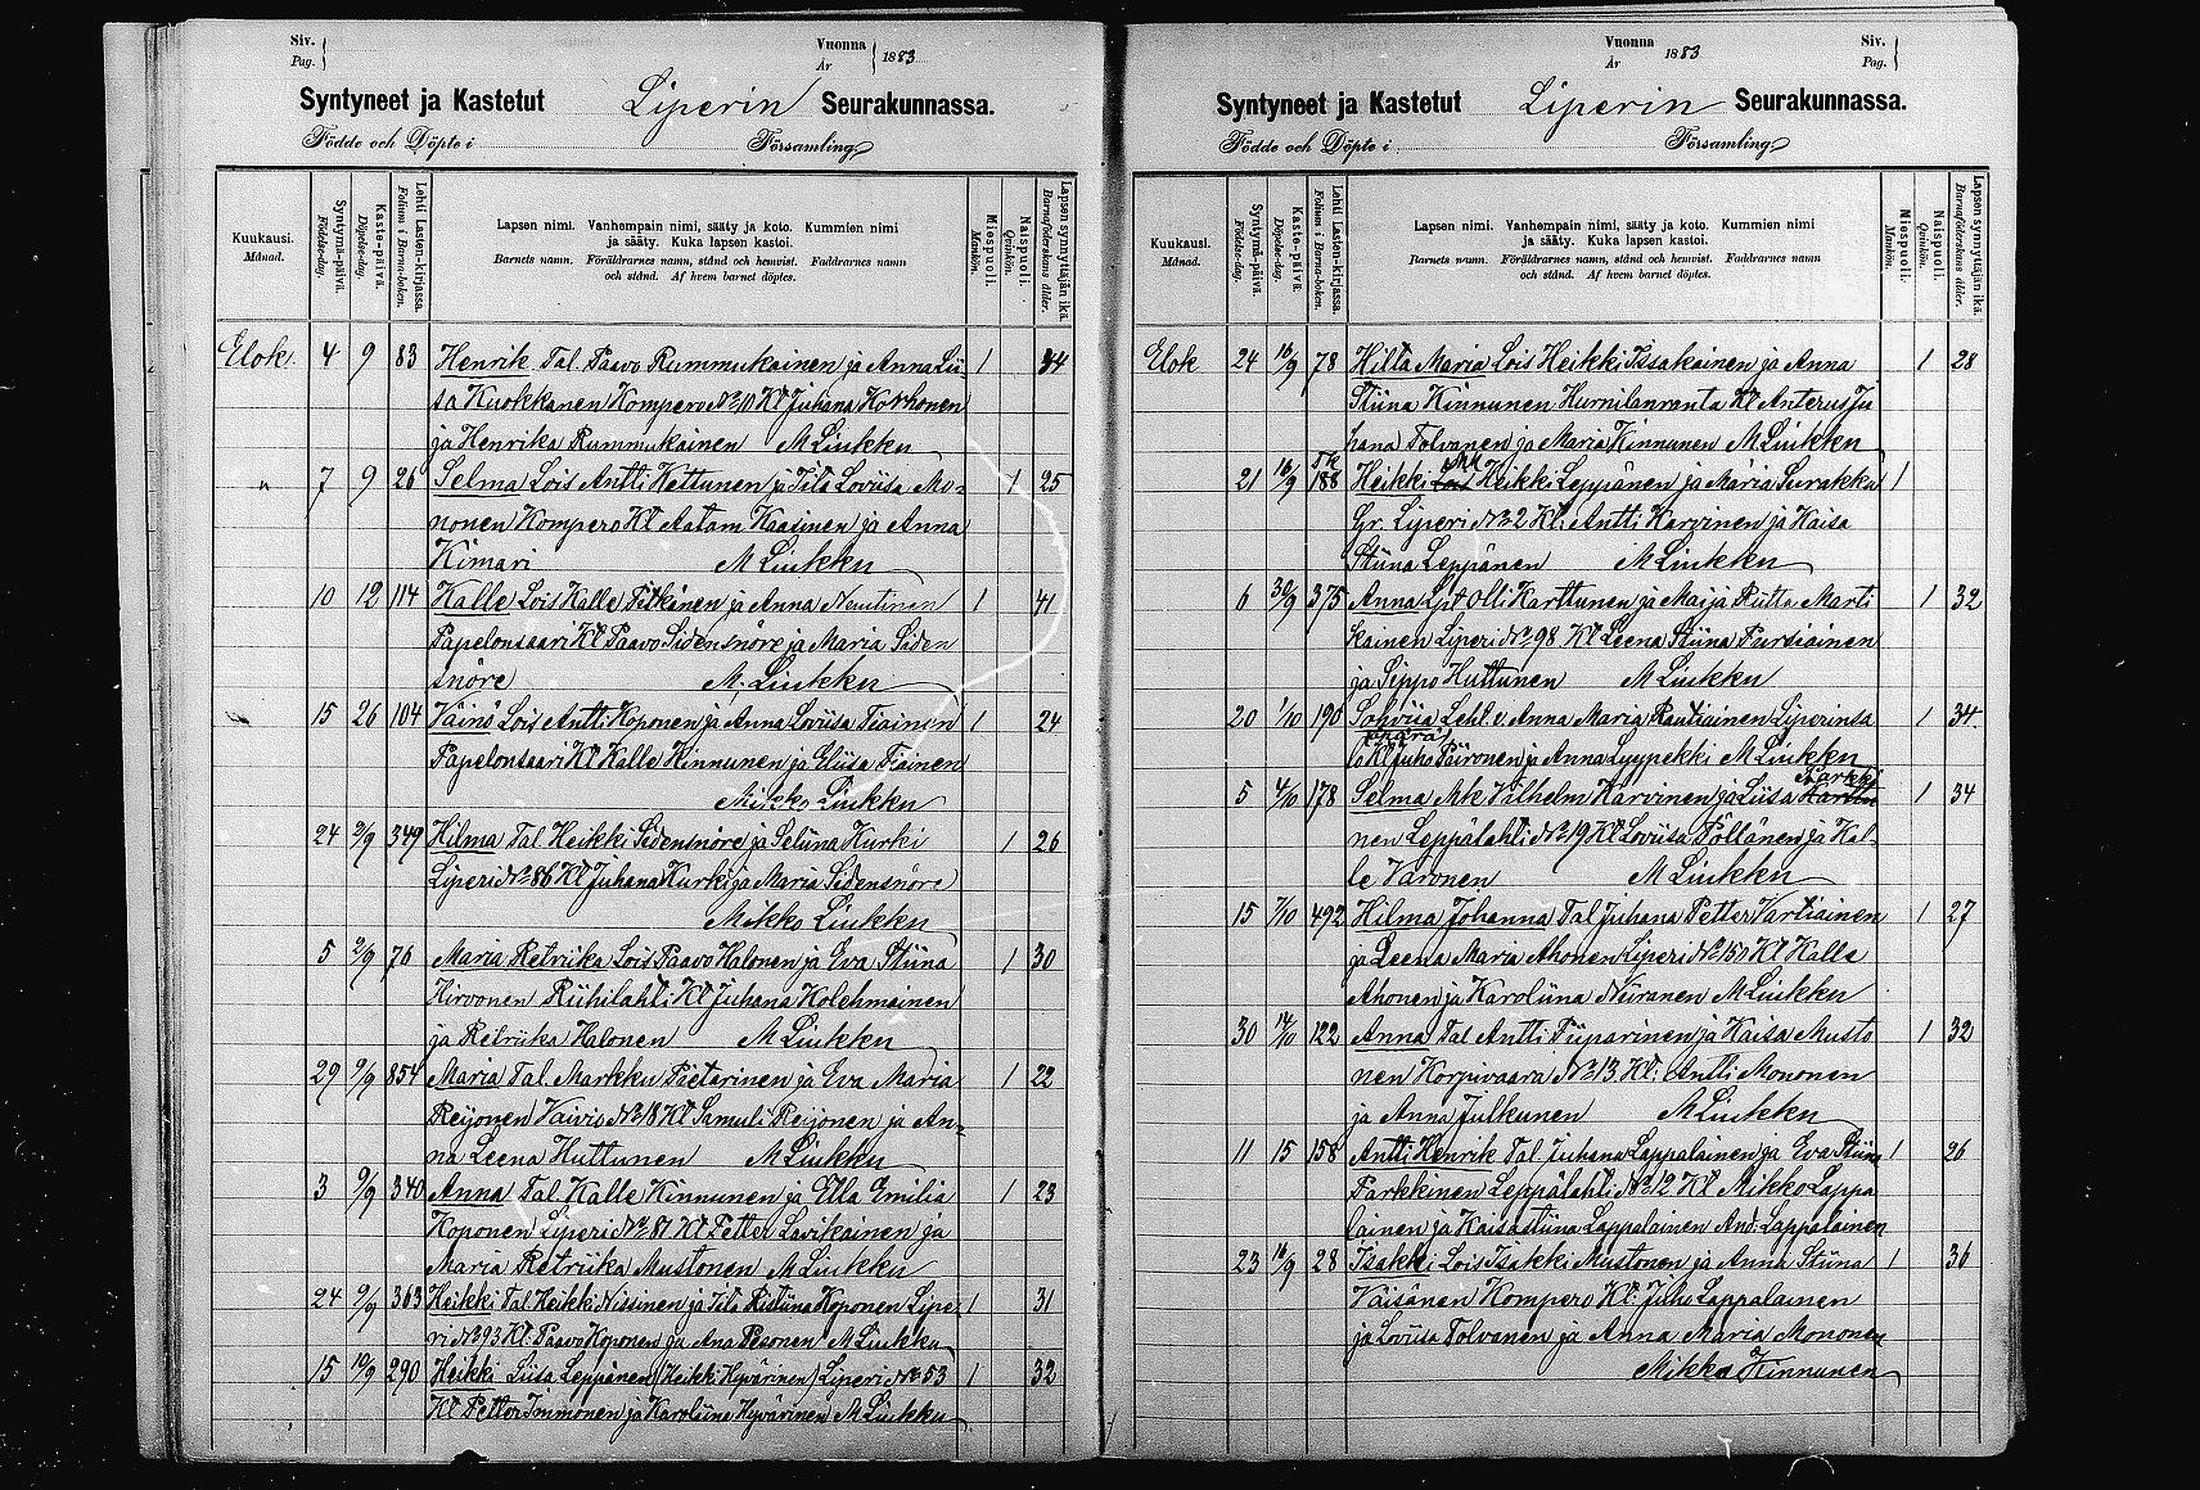 Siv.
Pag.
Vuonna
År
1883
Syntyneet ja Kastetut Liperin Seurakunnassa.
Födde och Döpte i Församling
Kuukausi.
Månad.
Syntymä-päivä.
Födelse-dag.
Kaste-päivä.
Döpelse-dag.
Lehti Lasten-kirjassa.
Folium i Barna-boken.
Lapsen nimi. Vanhempain nimi, sääty ja koto. Kummien nimi
ja sääty. Kuka lapsen kastoi.
Barnets namn. Föräldrarnes namn, stånd och hemvist. Faddrarnes namn
och stånd. Af hvem barnet döptes.
Miespuoli.
Mankön.
Naispuoli.
Qvinkön.
Lapsen synnyttäjän ikä.
Barnaföderskans ålder.
Elok. 4 9 83 Henrik Tal. Paavo Rummukainen ja Anna Lii- 1 44
sa Kuokkanen Kompero No 10 Kt Juhana Korhonen
ja Henrika Rummukainen M Liukku
" 7 9 26 Selma Lois Antti Kettunen ja Iita Loviisa Mo- 1 25
nonen Kompero Kt Aatam Kaasinen ja Anna
Kimari M Liukku
10 12 114 Kalle Lois Kalle Pitkänen ja Anna Nuutinen 1 41
Papelonsaari Kt Paavo Sidensnöre ja Maria Siden
snöre M. Liukku
15 26 104 Väinö Lois Antti Koponen ja Anna Loviisa Tiainen 1 24
Papelonsaari Kt Kalle Kinnunen ja Eliisa Tiainen
Mikko Liukku
24 2/9 349 Hilma Tal Heikki Sidensnöre ja Seliina Kurki 1 26
Liperi No 86 Kt Juhana Kurki ja Maria Sidensnöre
Mikko Liukku
5 2/9 76 Maria Retriika Lois Paavo Halonen ja Eva Stiina 1 30
Hirvonen Riihilahti Kt Juhana Kolehmainen
ja Retriika Halonen M Liukku
29 9/9 854 Maria Tal. Markku Pietarinen ja Eva Maria 1 22
Reijonen Vaivio No 18 Kt Samuli Reijonen ja An-
na Leena Huttunen M Liukku
3 9/9 340 Anna Tal. Kalle Kinnunen ja Ella Emilia 1 23
Koponen Liperi No 81 Kt Petter Lavikainen ja
Maria Retriika Mustonen M Liukku
24 9/9 363 Heikki Tal Heikki Nissinen ja Iita Ristiina Koponen Lipe- 1 31
ri No 93 Kt. Paavo Koponen ja Ana Pesonen M Liukku
15 10/9 290 Heikki Liisa Leppänen (Heikki Hyvärinen) Liperi No 53 1 32
Kt Petter Immonen ja Karoliina Hyvärinen M Liukku
Vuonna
År
1883
Siv.
Pag.
Syntyneet ja Kastetut Liperin Seurakunnassa.
Födde och Döpte i Församling
Kuukausi.
Månad.
Syntymä-päivä.
Födelse-dag.
Kaste-päivä.
Döpelse-dag.
Lehti Lasten-kirjassa.
Folium i Barna-boken.
Lapsen nimi. Vanhempain nimi, sääty ja koto. Kummien nimi
ja sääty. Kuka lapsen kastoi.
Barnets namn. Föräldrarnes namn, stånd och hemvist. Faddrarnes namn
och stånd. Af hvem barnet döptes.
Miespuoli.
Mankön.
Naispuoli.
Qvinkön.
Lapsen synnyttäjän ikä.
Barnaföderskans ålder.
Elok 24 16/9 78 Hilta Maria Lois Heikki Issakainen ja Anna 1 28
Stiina Kinnunen Hurnilanranta Kt Anterus Ju
hana Tolvanen ja Maria Kinnunen M Liukku
21 16/9 188 Heikki Lois Heikki Leppänen ja Maria Surakka 1
Gr. Liperi No 2 Kt. Antti Karvinen ja Kaisa
Stiina Leppänen M Liukku
6 30/9 375 Anna Lpt Olli Karttunen ja Maija Riitta Marti 1 32
kainen Liperi No 98 Kt Leena Stiina Pursiainen
ja Sippo Huttunen M Liukku
20 1/10 190 Sohviia Leht. v. Anna Maria Rautiainen Liperinsa 1 34
lo Kt Juho Päivonen ja Anna Lyypekki M Liukku
5 4/10 178 Selma Mk Vilhelm Karvinen ja Liisa Karttu Karkki 1 34
nen Leppälahti No 19 Kt Loviisa Pöllänen ja Kal-
le Varonen M Liukku
15 7/10 492 Hilma Johanna Tal Juhana Petter Vartiainen 1 27
ja Leena Maria Ahonen Liperi No 150 Kt Kalle
Ahonen ja Karoliina Niiranen M Liukku
30 14/10 122 Anna Tal Antti Piiparinen ja Kaisa Musto 1 32
nen Korpivaara No 13. Kt. Antti Mononen
ja Anna Julkunen M Liukku
11 15 158 Antti Henrik Tal. Juhana Lappalainen ja Eva Stiina 1 26
Parkkinen Leppälahti No 12 Kt Mikko Lappa
lainen ja Kaisastiina Lappalainen And. Lappalainen
23 16/9 28 Isakki Lois Isakki Mustonen ja Anna Stiina 1 36
Väisänen Kompero Kt. Juho Lappalainen
ja Loviisa Tolvanen ja Anna Maria Mononen
Mikko Kinnunen